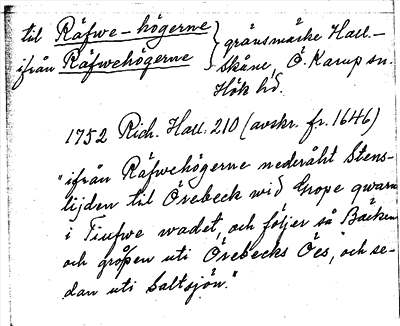 til Räfwe-högerne } gränsmärke Hall.-
ifrån Räfwehögerne } Skåne, Ö. Karup sn.
Höks hd.
1752 Rich. Hall: 210 (avskr. fr. 1646)
"ifrån Räfwehögerne nederåht Stens-
tijden til Örebeck wid Grope qwarn
i Tiufwe wadet, och följer så Bäcken
och großen uti Örebecks Öes, och se-
dan uti Saltsjön."